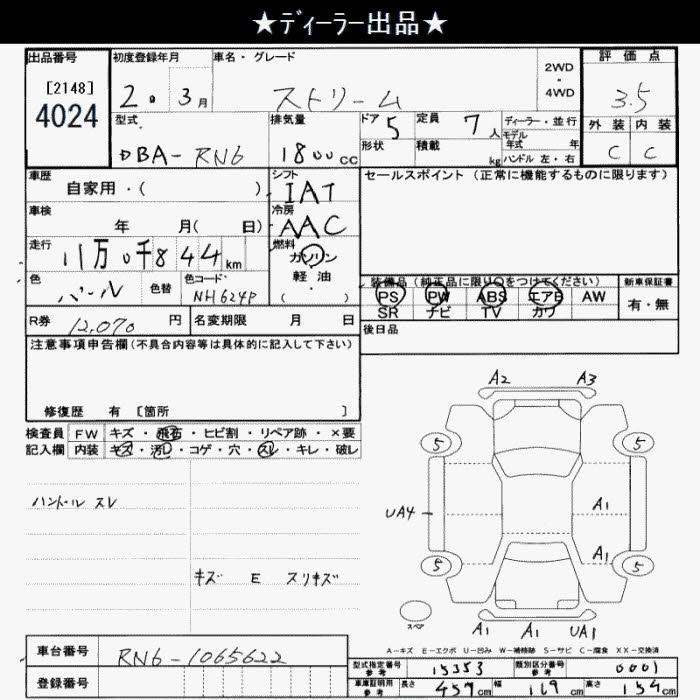 ★ディーラー出品★
出品番号
[2148]
4024
初度登録年月
2. 3月
車名・グレード
ストリーム
2WD
・
4WD
評価点
3.5
外装 内装
C C
型式
DBA-RN6
排気量
1800cc
ドア 5
形状
定員 7人
積載 kg
ディーラー・並行
モデル
年式 年
ハンドル 左・右
車歴
自家用・( )
シフト
IAT
セールスポイント(正常に機能するものに限ります)
車検
年 月( 日)
冷房
AAC
走行
11万0千844km
燃料
ガソリン
軽油
( )
色
パール
色替
色コード
NH624P
装備品(純正品に限り○をつけてください)
PS PW ABS エアB AW
SR ナビ TV カワ
新車保証書
有・無
R券 12,070円
名変期限 月 日
後日品
注意事項申告欄(不具合内容等は具体的に記入して下さい)
修復歴 有 [箇所 ]
検査員 FW キズ・飛石・ヒビ割・リペア跡・×要
記入欄 内装 キズ・汚レ・コゲ・穴・スレ・キレ・破レ
ハンドル スレ
キズ E スリキズ
A2 A3
5 5
UA4 A1
A1
5 5
スペア
A1 A1 UA1
A-キズ E-エクボ U-凹み W-補修跡 S-サビ C-腐食 XX-交換済
車台番号 RN6-1065622
登録番号
型式指定番号 参考 15353
類別区分番号 参考 0001
車庫証明用 参考 長さ 457cm 幅 169cm 高さ 154cm